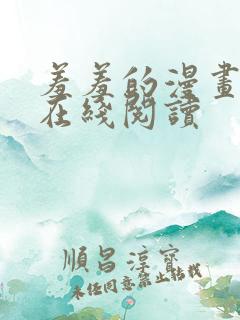 羞羞的漫畫
在綫閱讀
順昌淳寶
未经同意禁止转载